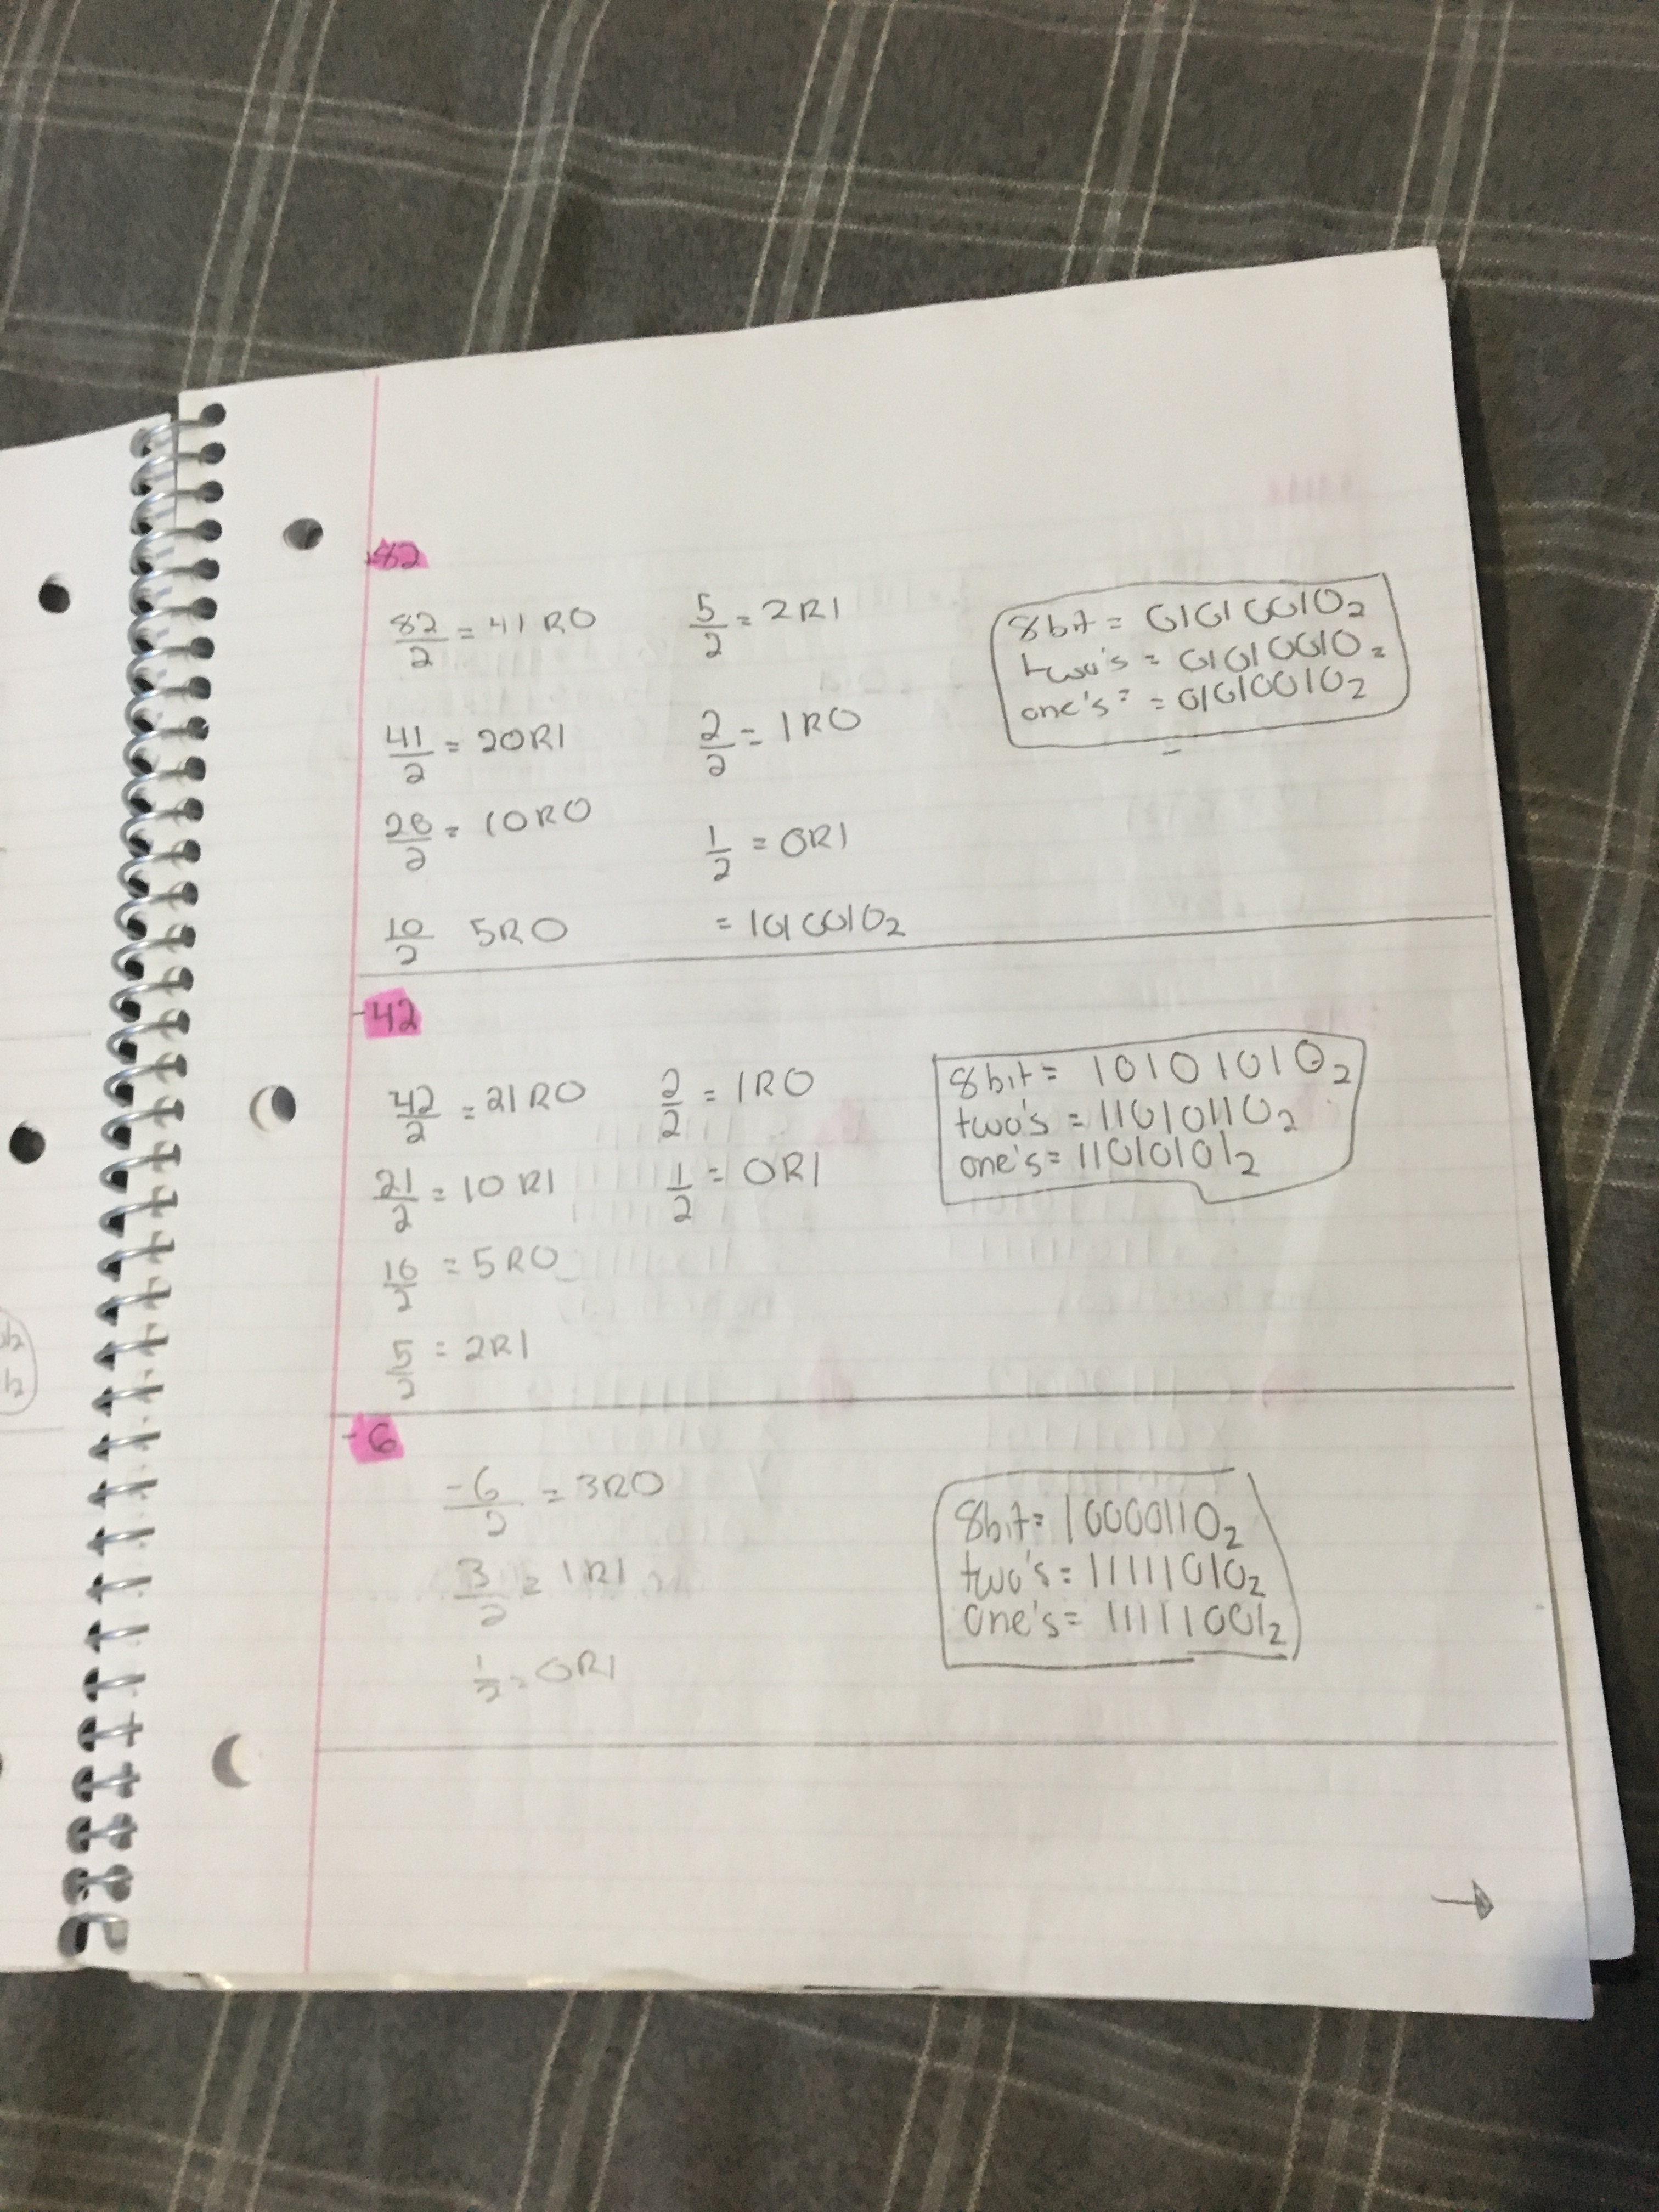 +82
82/2 = 41 R0
5/2 = 2R1
41/2 = 20R1
2/2 = 1R0
20/2 = 10R0
1/2 = 0R1
10/2 5R0
= 1010010₂
8bit = 01010010₂
two's = 01010010₂
one's = 01010010₂
=
-42
42/2 = 21R0
2/2 = 1R0
21/2 = 10 R1
1/2 = 0R1
10/2 = 5R0
5/2 = 2R1
8bit = 10101010₂
two's = 11010110₂
one's = 11010101₂
-6
-6/2 = 3R0
3/2 = 1R1
1/2 = 0R1
8bit = 10000110₂
two's = 11111010₂
one's = 11111001₂
→